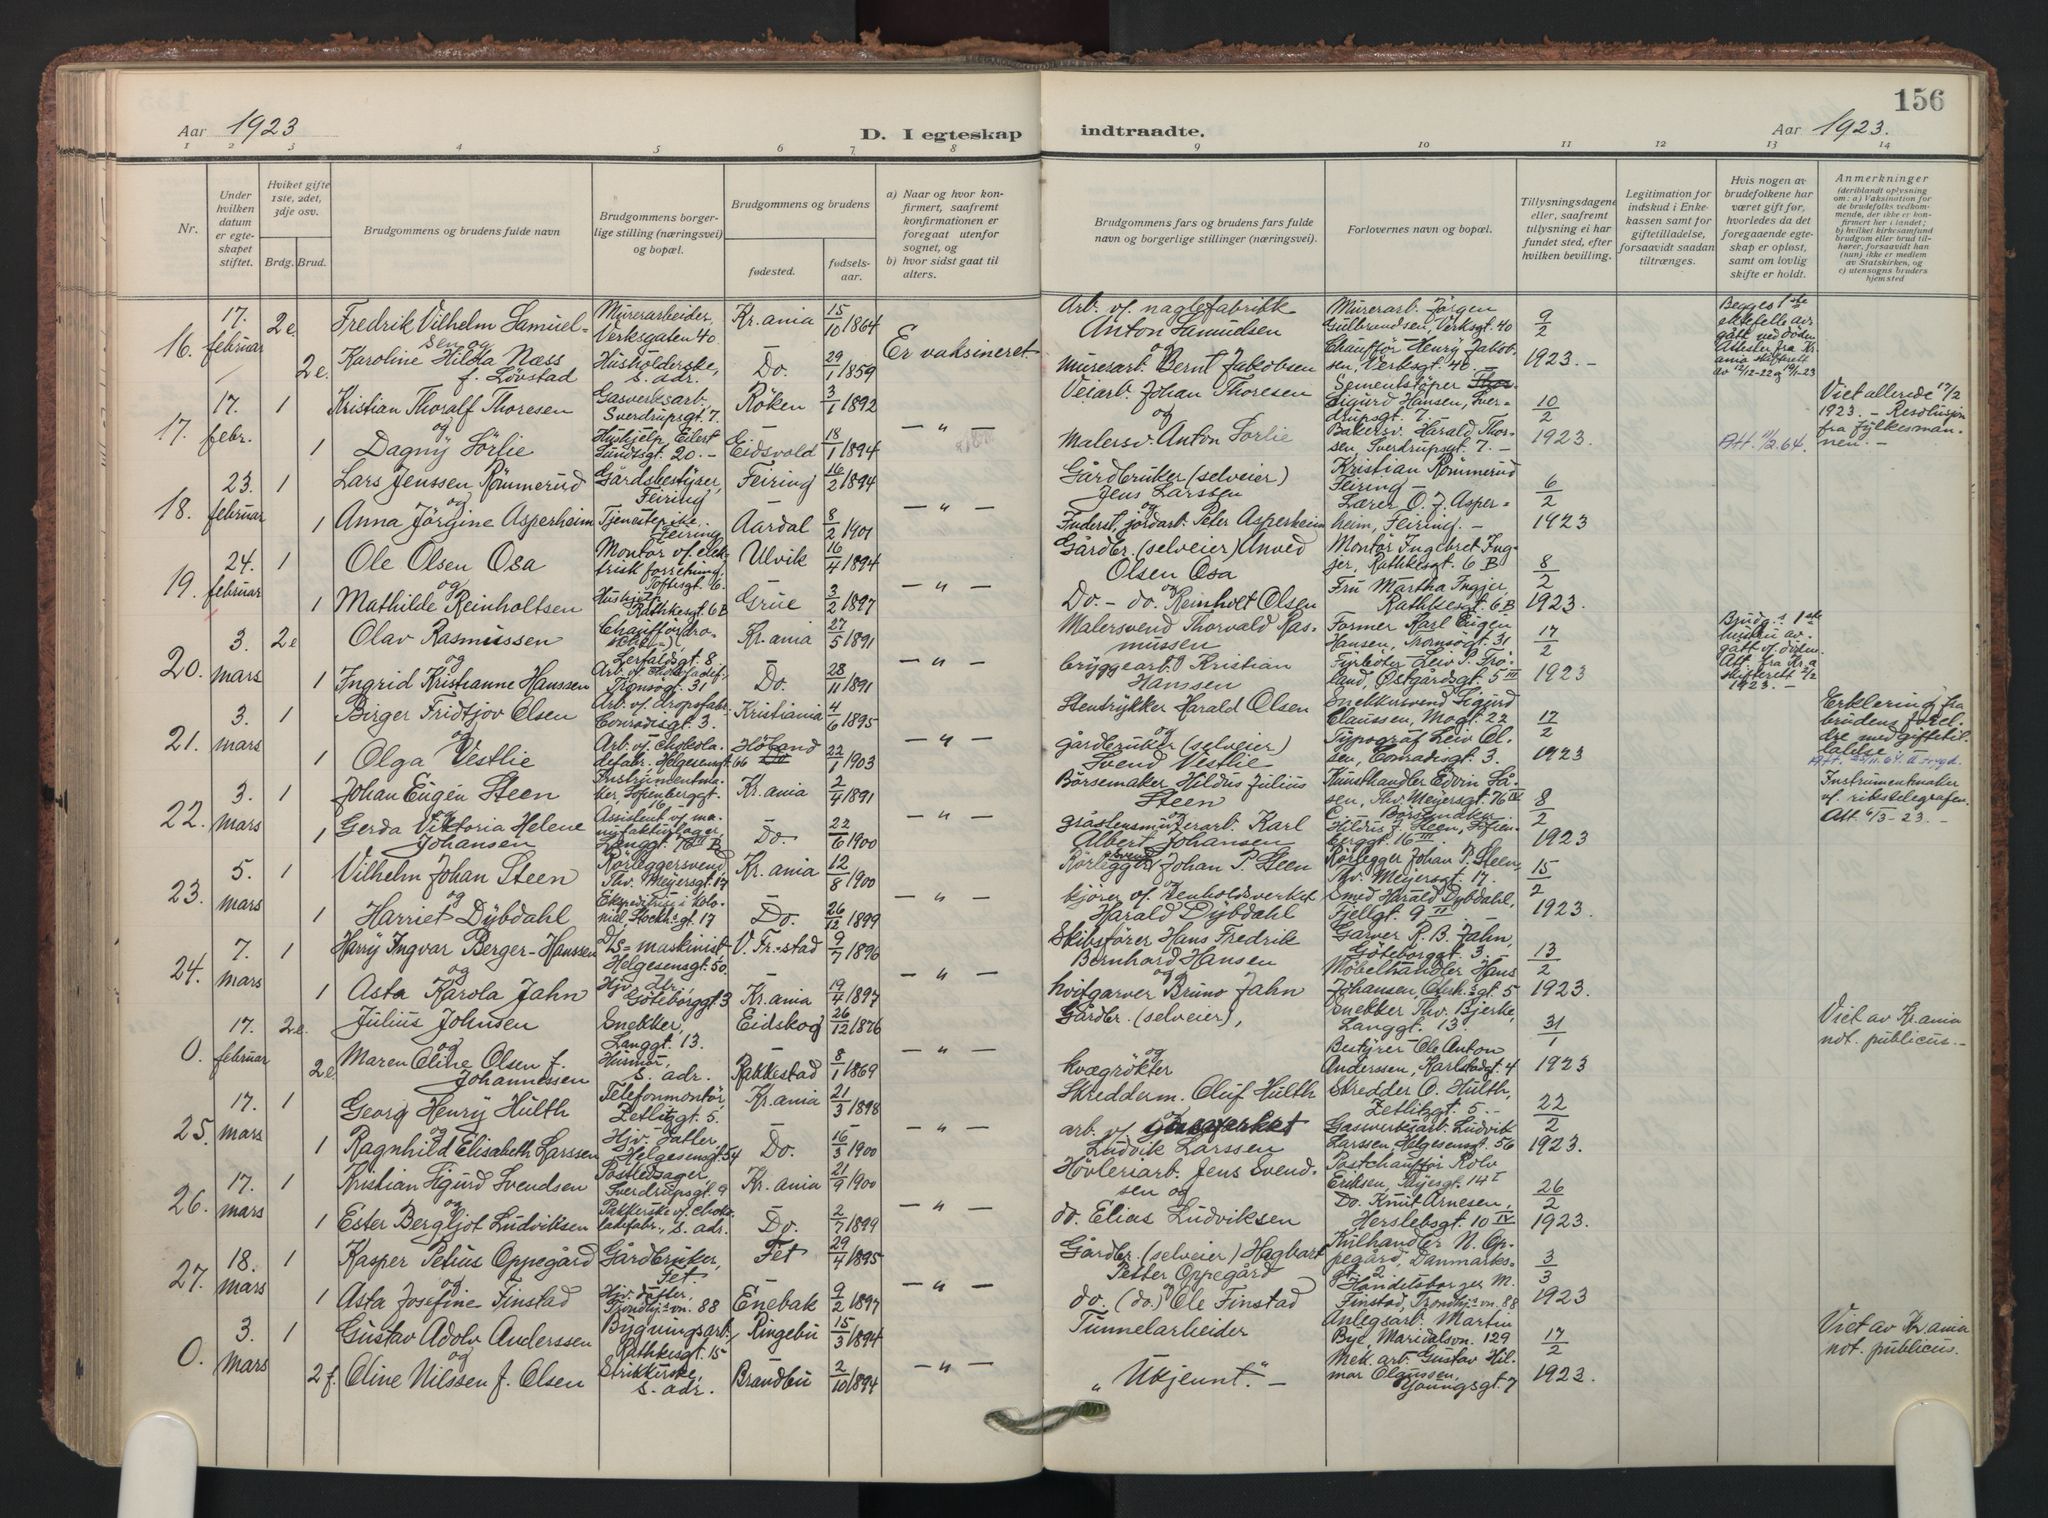 156
Aar 1923
D. I egteskap indtraadte.
Aar 1923.
1 2 3 4 5 6 7 8 9 10 11 12 13 14
Nr.
Under hvilken datum er egteskapet stiftet.
Hviket gifte 1ste, 2det, 3dje osv.
Brdg. Brud.
Brudgommens og brudens fulde navn
Brudgommens borgerlige stilling (næringsvei) og bopæl.
Brudgommens og brudens
fødested.
fødselsaar.
a) Naar og hvor konfirmert, saafremt konfirmationen er foregaat utenfor sognet, og
b) hvor sidst gaat til alters.
Brudgommens fars og brudens fars fulde navn og borgerlige stillinger (næringsvei).
Forlovernes navn og bopæl.
Tillysningsdagene eller, saafremt tillysning ei har fundet sted, efter hvilken bevilling.
Legitimation for indskud i Enkekassen samt for giftetilladelse, forsaavidt saadan tiltrænges.
Hvis nogen av brudefolkene har været gift før, hvorledes da det foregaaende egteskap er opløst, samt om lovlig skifte er holdt.
Anmerkninger
(deriblandt oplysning om: a) Vaksination for de brudefolks vedkommende, der ikke er konfirmert her i landet; b) hvilket kirkesamfund brudgom eller brud tilhører, forsaavidt han (hun) ikke er medlem av Statskirken, og c) utensogns bruders hjemsted
16. 17. februar 2e Fredrik Vilhelm Samuelsen og
Murerarbeider, Verksgaten 40. Kr.ania 15/10 1864 Er vaksineret
Arb. v. naglefabrikk Anton Samuelsen og
Murerarb. Jörgen Gulbrandsen, Verksgt. 40 9/2 1923.
2e. Karoline Hilda Næss f. Lövstad
Husholderske, s. adr. Do. 29/1 1859
murerarb. Bernt Jakobsen
Chauffør Henry Jakobsen, Verksgt. 40.
Begges 1ste ektefelle avgått ved döden. Attester fra Kr.ania skifterett av 12/12-22 og 19/1-23
17. 17. febr. 1 Kristian Thoralf Thoresen og
Gasverksarb., Sverdrupsgt. 7. Röken 3/1 1892 — " —
Veiarb. Johan Thoresen og
Sementstöper Sigurd Hansen, Sverdrupsgt. 7. 10/2 1923.
1 Dagny Sörlie
Hushjelp Eilert Sundtsgt. 20. Eidsvold 18/1 1894
Malersv. Anton Sörlie
Bakersv. Harald Thorsen, Sverdrupsgt. 7.
Viet allerede 17/2 1923. — Resolusjon fra fylkesmannen.
18. 23. februar 1 Lars Jenssen Römmerud og
Gårdsbestyrer, Feiring Feiring 16/2 1894 — " —
Gårdbruker (selveier) Jens Larssen og
Kristian Römmerud Feiring 6/2 1923
1 Anna Jörgine Asperheim
Tjenestepike, Feiring Aardal 8/2 1901
Inderst, jordarb. Peter Asperheim
Lærer O. J. Asperheim, Feiring.
19. 24. februar 1 Ole Olsen Osa og
Montör v. elektrisk forretning, Toftesgt. 6. Ulvik 16/4 1894 — " —
Gårdbr. (selveier) Anved Olsen Osa og
Montör Ingebret Ingjer, Rathkesgt. 6 B 8/2 1923.
1 Mathilde Reinholtsen
Hushjelp Rathkesgt. 6B Grue 3/2 1897
Do. — do. Reinholt Olsen
Fru Martha Ingjer, Rathkesgt. 6B
20. 3. mars 2e Olav Rasmussen og
Chauffør Lerfaldsgt. 8 Kr.ania 27/5 1891 — " —
Malersvend Thorvald Rasmussen
Former Karl Eugen Hansen, Tromsögt. 31 17/2 1923
1 Ingrid Kristianne Hanssen
Tromsogt. 31 Do. 28/11 1891
bryggearb. Kristian Hanssen
Fyrböter Leiv P. Fröland, Østgårdsgt. 5 III
Brudg.s 1ste hustru avgått v. döden. Att. fra Kr.a skifterett 2/2 1923.
21. 3. mars 1 Birger Fridtjov Olsen og
Arb. v. dropsfabr. Conradisgt. 3. Kristiania 4/6 1895 — " —
Stentrykker Harald Olsen og
Snekkersvend Sigurd Claussen, Mogt. 22 17/2 1923
1 Olga Vestlie
Arb. v. chokoladefabr. Helgesensgt. 66 Höland 22/1 1903
gårdbruker (selveier) Svend Vestlie
Typograf Leiv Olsen, Conradisgt. 3.
Erklering fra brudens foreldre med giftetillatelse.
22. 3. mars 1 Johan Eugén Steen
Instrumentmaker, Sofienberggt. 16 Kr.ania 2/4 1891 — " —
Börsemaker Hildus Julius Steen og
Kunsthandler Edvin Låsen, Thv. Meyersgt. 76 IV 8/2 1923
1 Gerda Viktoria Helene Johansen
Assistent v. manufakturlager, Langgt. Do. 22/6 1900
gråstensmurerarb. Karl Albert Johansen
Instrumentmaker v. rikstelegrafen. Att. 6/3-23.
23. 5. mars 1 Vilhelm Johan Steen og
Rörleggersvend, Thv. Meyersgt. 17 Kr.ania 12/8 1900 — " —
Rörlegger Johan P. Steen og
Rörlegger Johan P. Steen, Thv. Meyersgt. 17. 15/2 1923.
1 Harriet Dybdahl
Ekspeditrise i kolonial Stockh.gt. 17 Do. 26/12 1899
kjörer v. Renholdsverket Harald Dybdahl
Smed Harald Dybdahl, Fjellgt. 9 II
24. 7. mars 1 Harry Ingvar Berger-Hanssen og
D/s-maskinist, Helgesensgt. 50. V. Fr.stad 9/7 1896 — " —
Skibsförer Hans Fredrik Bernhard Hansen og
Garver R. B. Jahn, Göteborggt. 3. 13/2 1923.
1 Asta Karola Jahn
Hjv. dtr., Göteborggt. 3 Kr.ania 19/4 1897
hvitgarver Bruno Jahn
Möbelhandler Hans Johansen, gt. 5
0. 17. februar 2e. Julius Johnsen og
Snekker, Langgt. 13. Eidskog 26/12 1876 — " —
Gårdbr. (selveier), og
Snekker Thv. Bjerke, Langgt. 13. 31/1 1923
2e Maren Oline Olsen f. Johannessen
Husmor, s. adr. Rakkestad 8/1 1869
kvægrökter
Bestyrer Ole Anton Anderssen, Karlstadgt. 4
Viet av Kr.ania not. publicus.
25. 17. mars 1 Georg Henry Hulth og
Telefonmontör, Zetlitzgt. 5. Kr.ania 21/3 1898 — " —
Skredderm. Oluf Hulth og
Skredder O. Hulth, Zetlitzgt. 5. 22/2 1923.
1 Ragnhild Elisabeth Larssen
Hjv. datter, Helgesensgt. 54 Do. 16/3 1900
arb. v. gassverket Ludvik Larssen
Gasverksarb. Ludvik Larssen, Helgesensgt. 56
26. 17. mars 1 Kristian Sigurd Svendsen og
Sverdrupsgt. 9 Kr.ania 21/9 1900 — " —
Hövleriarb. Jens Svendsen og
Postchauffør Rolv Eriksen, Thyesgt. 14 I 26/2 1923.
1 Ester Bergljot Ludviksen
Pakkerske v. chokoladefabr., s. adr. Do. 2/7 1899
do. Elias Ludviksen
Do. Knut Arnesen, Herslebsgt. 10 IV
27. 18. mars 1 Kasper Petius Oppegård og
Gårdbruker, Fet Fet 29/4 1895 — " —
Gårdbr. (selveier) Hagbart Petter Oppegård og
Kulhandler N. Oppegård, Danmarksgt. 2 3/3 1923
1 Asta Josefine Finstad
Hjv. datter, Trondhj.svn. 88 Enebak 9/2 1897
do. (do.) Ole Finstad
Handelsborger M. Finstad, Trondhj.svn. 88
0. 3. mars 1 Gustav Adolv Anderssen og
Bygningsarb., Rathkesgt. 15 Ringebu 15/3 1894 — " —
Tunnelarbeider
Anlegsarb. Martin Bye, Maridalsvn. 129 17/2 1923.
2 f. Oline Nilssen f. Olsen
Strikkerske, s. adr. Brandbu 2/10 1894
"Ukjennt."
Mek. arb. Gustav Hilmar Olaussen, Youngsgt. 7
Viet av Kr.ania not. publicus.